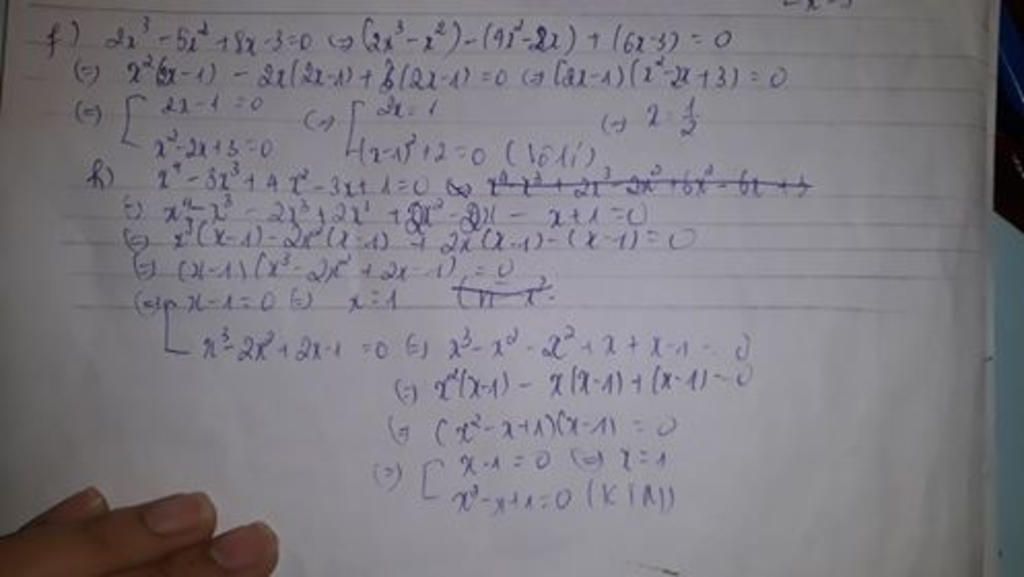 f) 2x³ - 5x² + 8x - 3 = 0 ⇔ (2x³ - x²) - (4x² - 2x) + (6x - 3) = 0
⇔ x²(2x - 1) - 2x(2x - 1) + 3(2x - 1) = 0 ⇔ (2x - 1)(x² - 2x + 3) = 0
⇔ [ 2x - 1 = 0 ⇔ [ 2x = 1 ⇔ x = 1/2
x² - 2x + 3 = 0 (x - 1)² + 2 = 0
h) x⁴ - 3x³ + 4x² - 3x + 1 = 0 ⇔
⇔ x⁴ - x³ - 2x³ + 2x² + 2x² - 2x - x + 1 = 0
⇔ x³(x - 1) - 2x²(x - 1) + 2x(x - 1) - (x - 1) = 0
⇔ (x - 1)(x³ - 2x² + 2x - 1) = 0
⇔ [ x - 1 = 0 ⇔ x = 1
x³ - 2x² + 2x - 1 = 0 ⇔ x³ - x² - x² + x + x - 1 = 0
⇔ x²(x - 1) - x(x - 1) + (x - 1) = 0
⇔ (x² - x + 1)(x - 1) = 0
⇔ [ x - 1 = 0 ⇔ x = 1
x² - x + 1 = 0